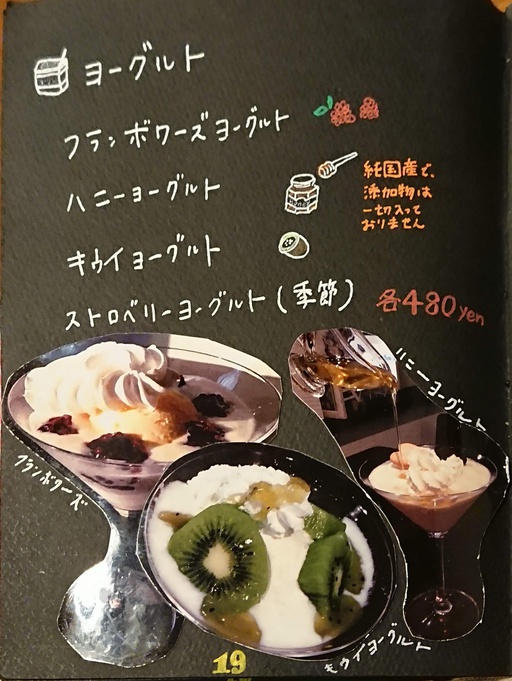 ヨーグルト
フランボワーズヨーグルト
ハニーヨーグルト
純国産で、
添加物は
一切入って
おりません
キウイヨーグルト
ストロベリーヨーグルト(季節)
各480yen
ハニーヨーグルト
フランボワーズ
キウイヨーグルト
19